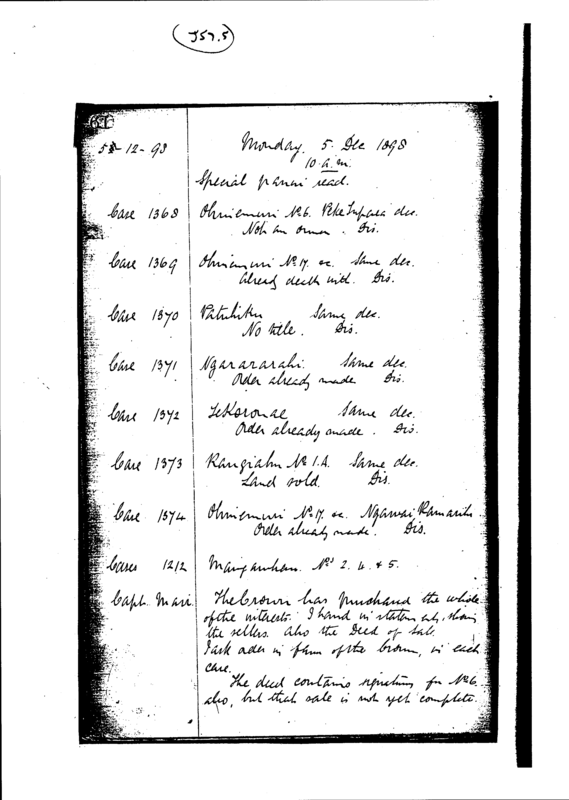 J57.5
61
5-12-98 Monday, 5. Dec 1898
10 a.m.
Special panui read.
Case 1368 Ohinemuri No 6. dec.
Not an owner. Dis.
Case 1369 Ohinemuri No 17. &c. Same dec.
Already dealt with. Dis.
Case 1370 Same dec.
No title. Dis.
Case 1371 Ngararahi. Same dec.
Order already made Dis.
Case 1372 TeKoronae Same dec.
Order already made. Dis.
Case 1373 No 1.A. Same dec.
Land sold. Dis.
Case 1374 Ohinemuri No 17. &c. Ngawai
Order already made. Dis.
Cases 1212 Nos 2. 4. & 5.
Capt. Mair The Crown has purchased the whole
of the interests. I hand in showing
the sellers. Also the Deed of Sale.
I ask order in favor of the Crown, in each
case.
The deed contains signatures for No 6
also, but that sale is not yet complete.